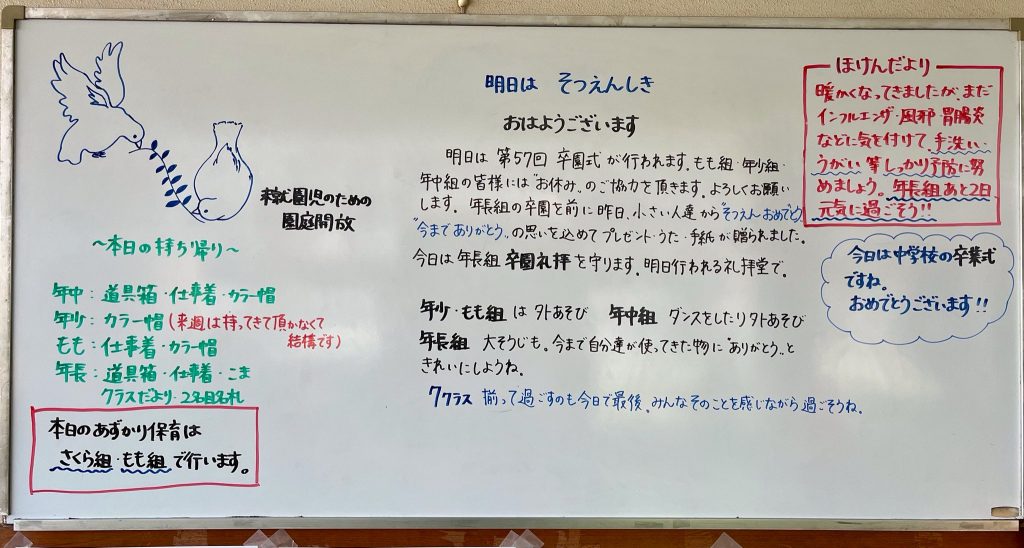 明日は そつえんしき
おはようございます
明日は 第57回 卒園式 が行われます。もも組・年少組・
年中組の皆様には"お休み„のご協力を頂きます。よろしくお願い
します。年長組の卒園を前に昨日、小さい人達から"そつえんおめでとう
今までありがとう„の思いを込めてプレゼント・うた・手紙が贈られました。
今日は年長組 卒園礼拝を守ります。明日行われる礼拝堂で。
年少・もも組 は 外あそび 年中組 ダンスをしたり外あそび
年長組 大そうじも。今まで自分達が使ってきた物に"ありがとう„と
きれいにしようね。
7クラス 揃って過ごすのも今日で最後。みんなそのことを感じながら過ごそうね。
未就園児のための
園庭開放
～本日の持ち帰り～
年中：道具箱・仕事着・カラー帽
年少：カラー帽(来週は持ってきて頂かなくて
結構です)
もも：仕事着・カラー帽
年長：道具箱・仕事着・こま
クラスだより・2名目名札
本日のあずかり保育は
さくら組・もも組で行います。
ほけんだより
暖かくなってきましたが、まだ
インフルエンザ・風邪・胃腸炎
などに気を付けて、手洗い・
うがい等しっかり予防に努
めましょう。年長組あと2日
元気に過ごそう!!
今日は中学校の卒業式
ですね。
おめでとうございます!!